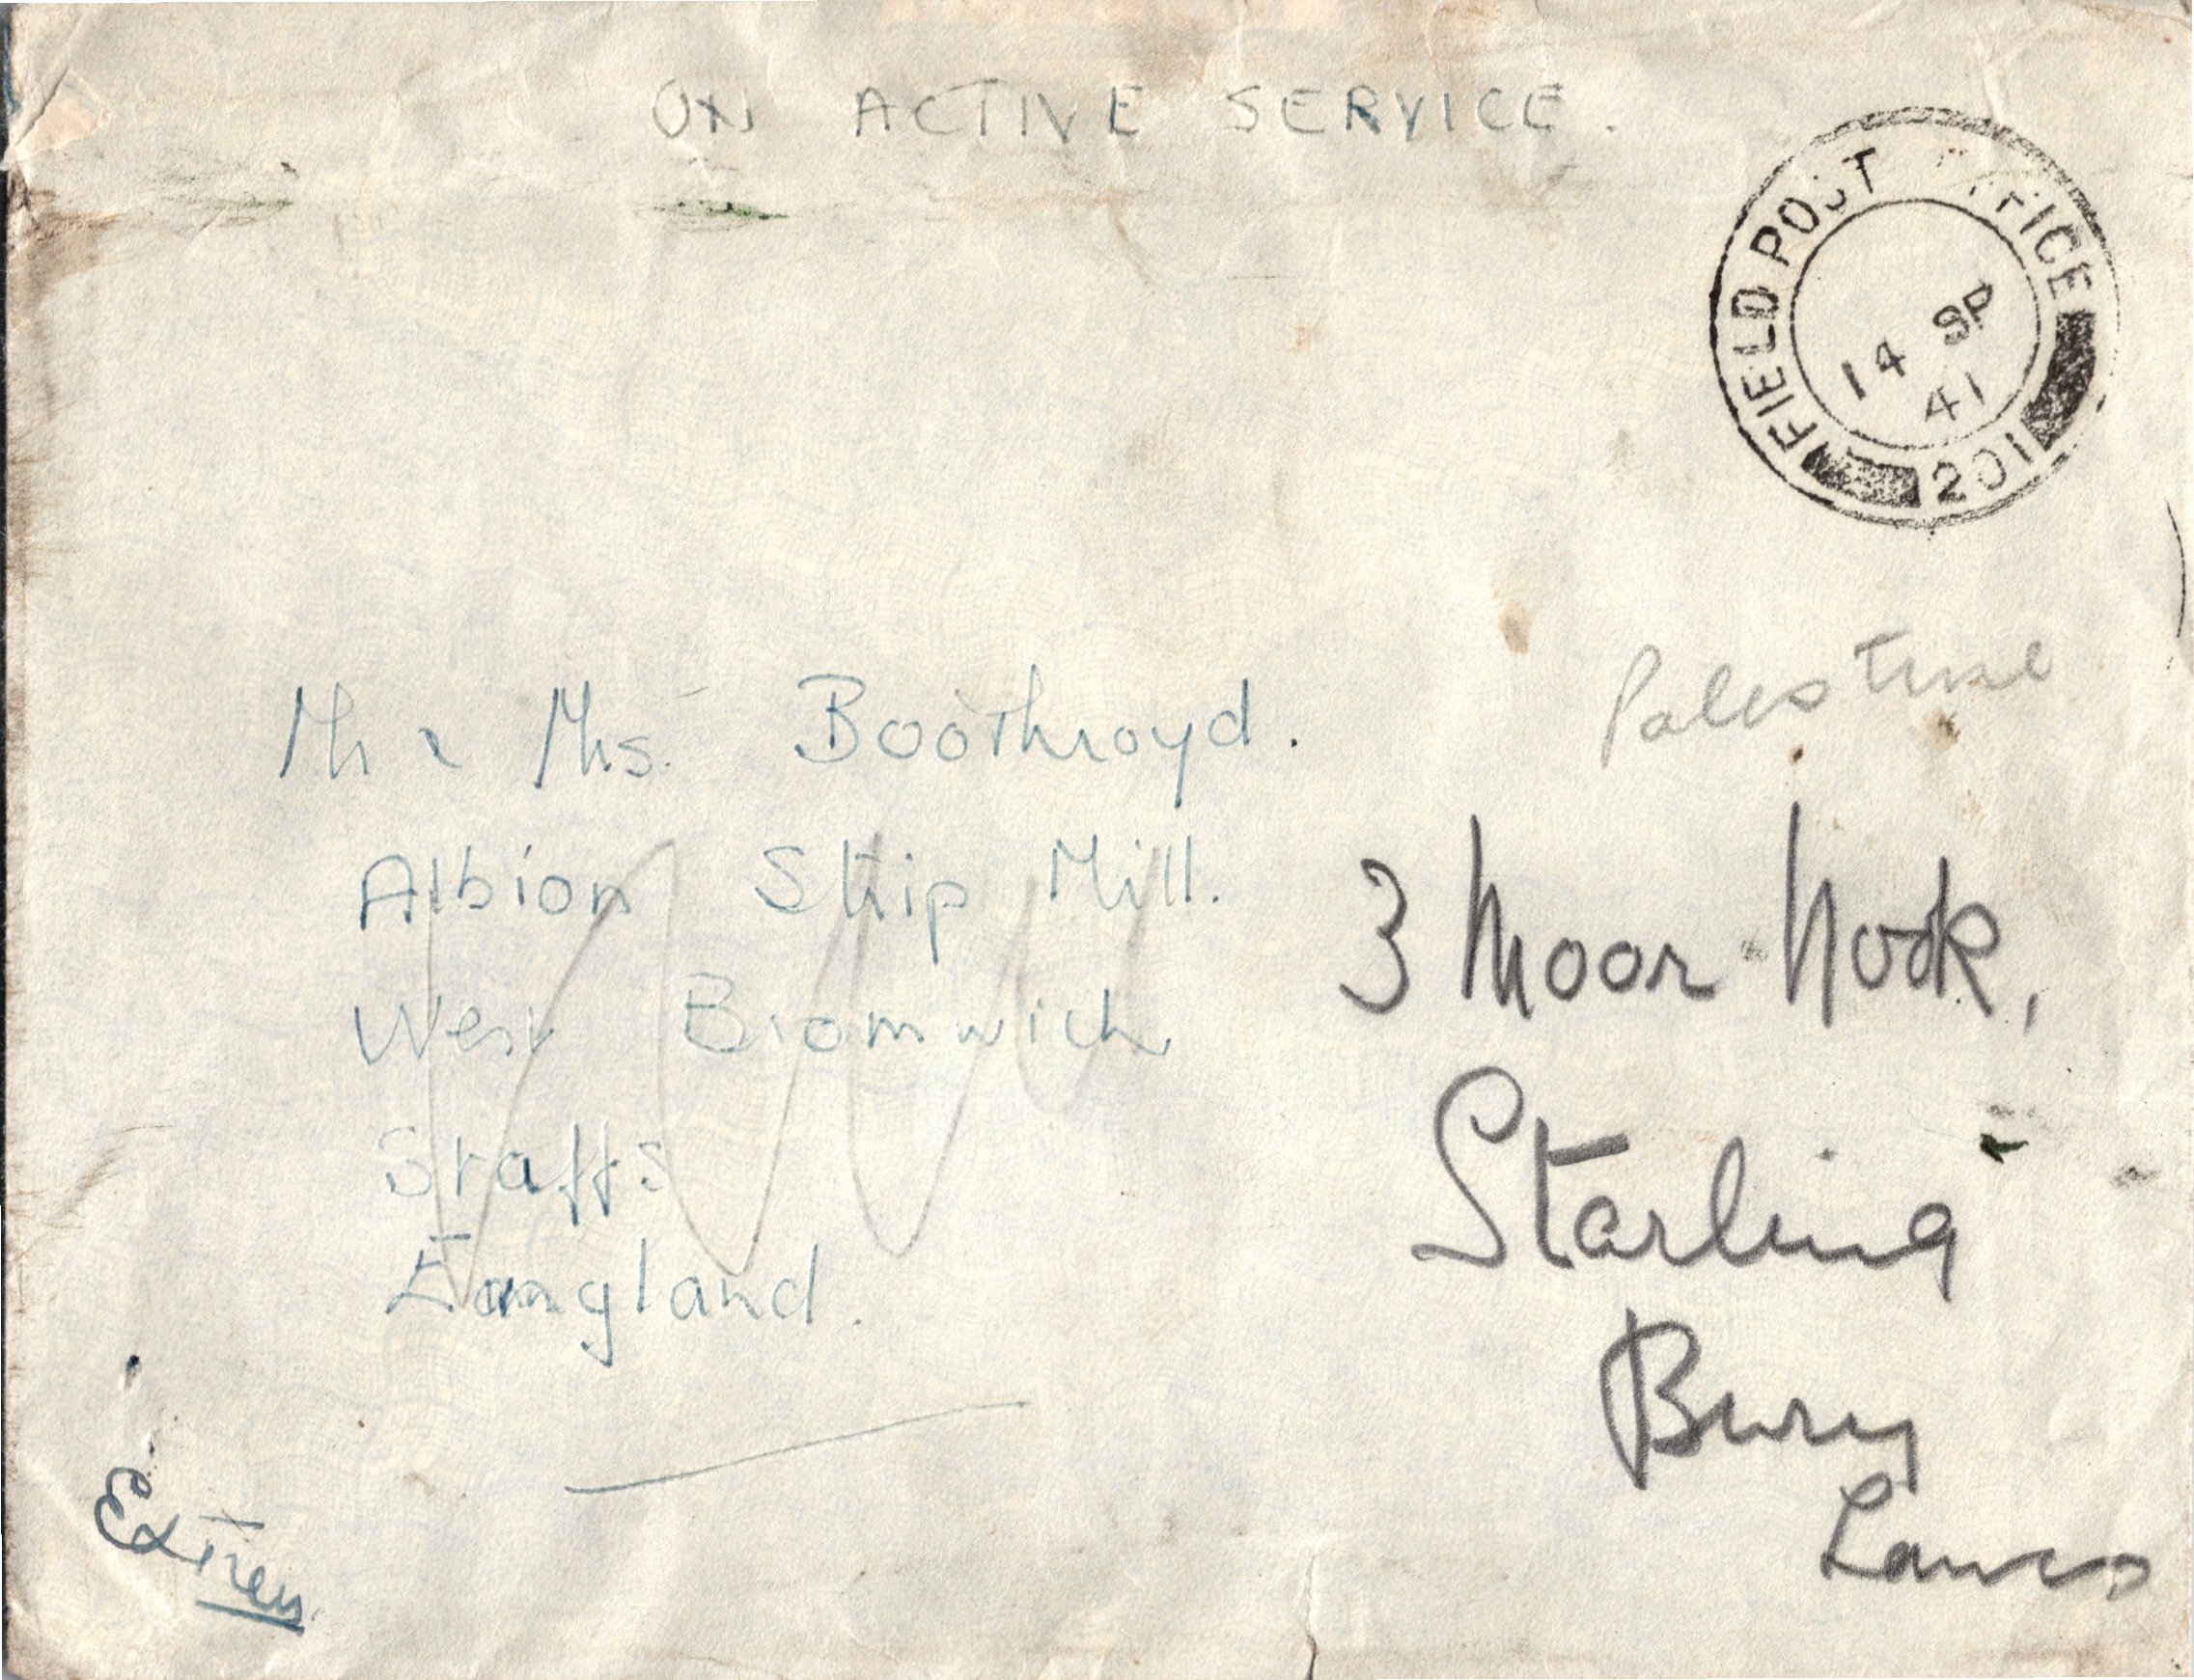 ON ACTIVE SERVICE.
FIELD POST OFFICE
14 SP
41
201
Palestine
Mr & Mrs. Boothroyd.
Albion Strip Mill.
West Bromwich
Staffs
England.
3 Moor Nook,
Starling
Bury
Lancs